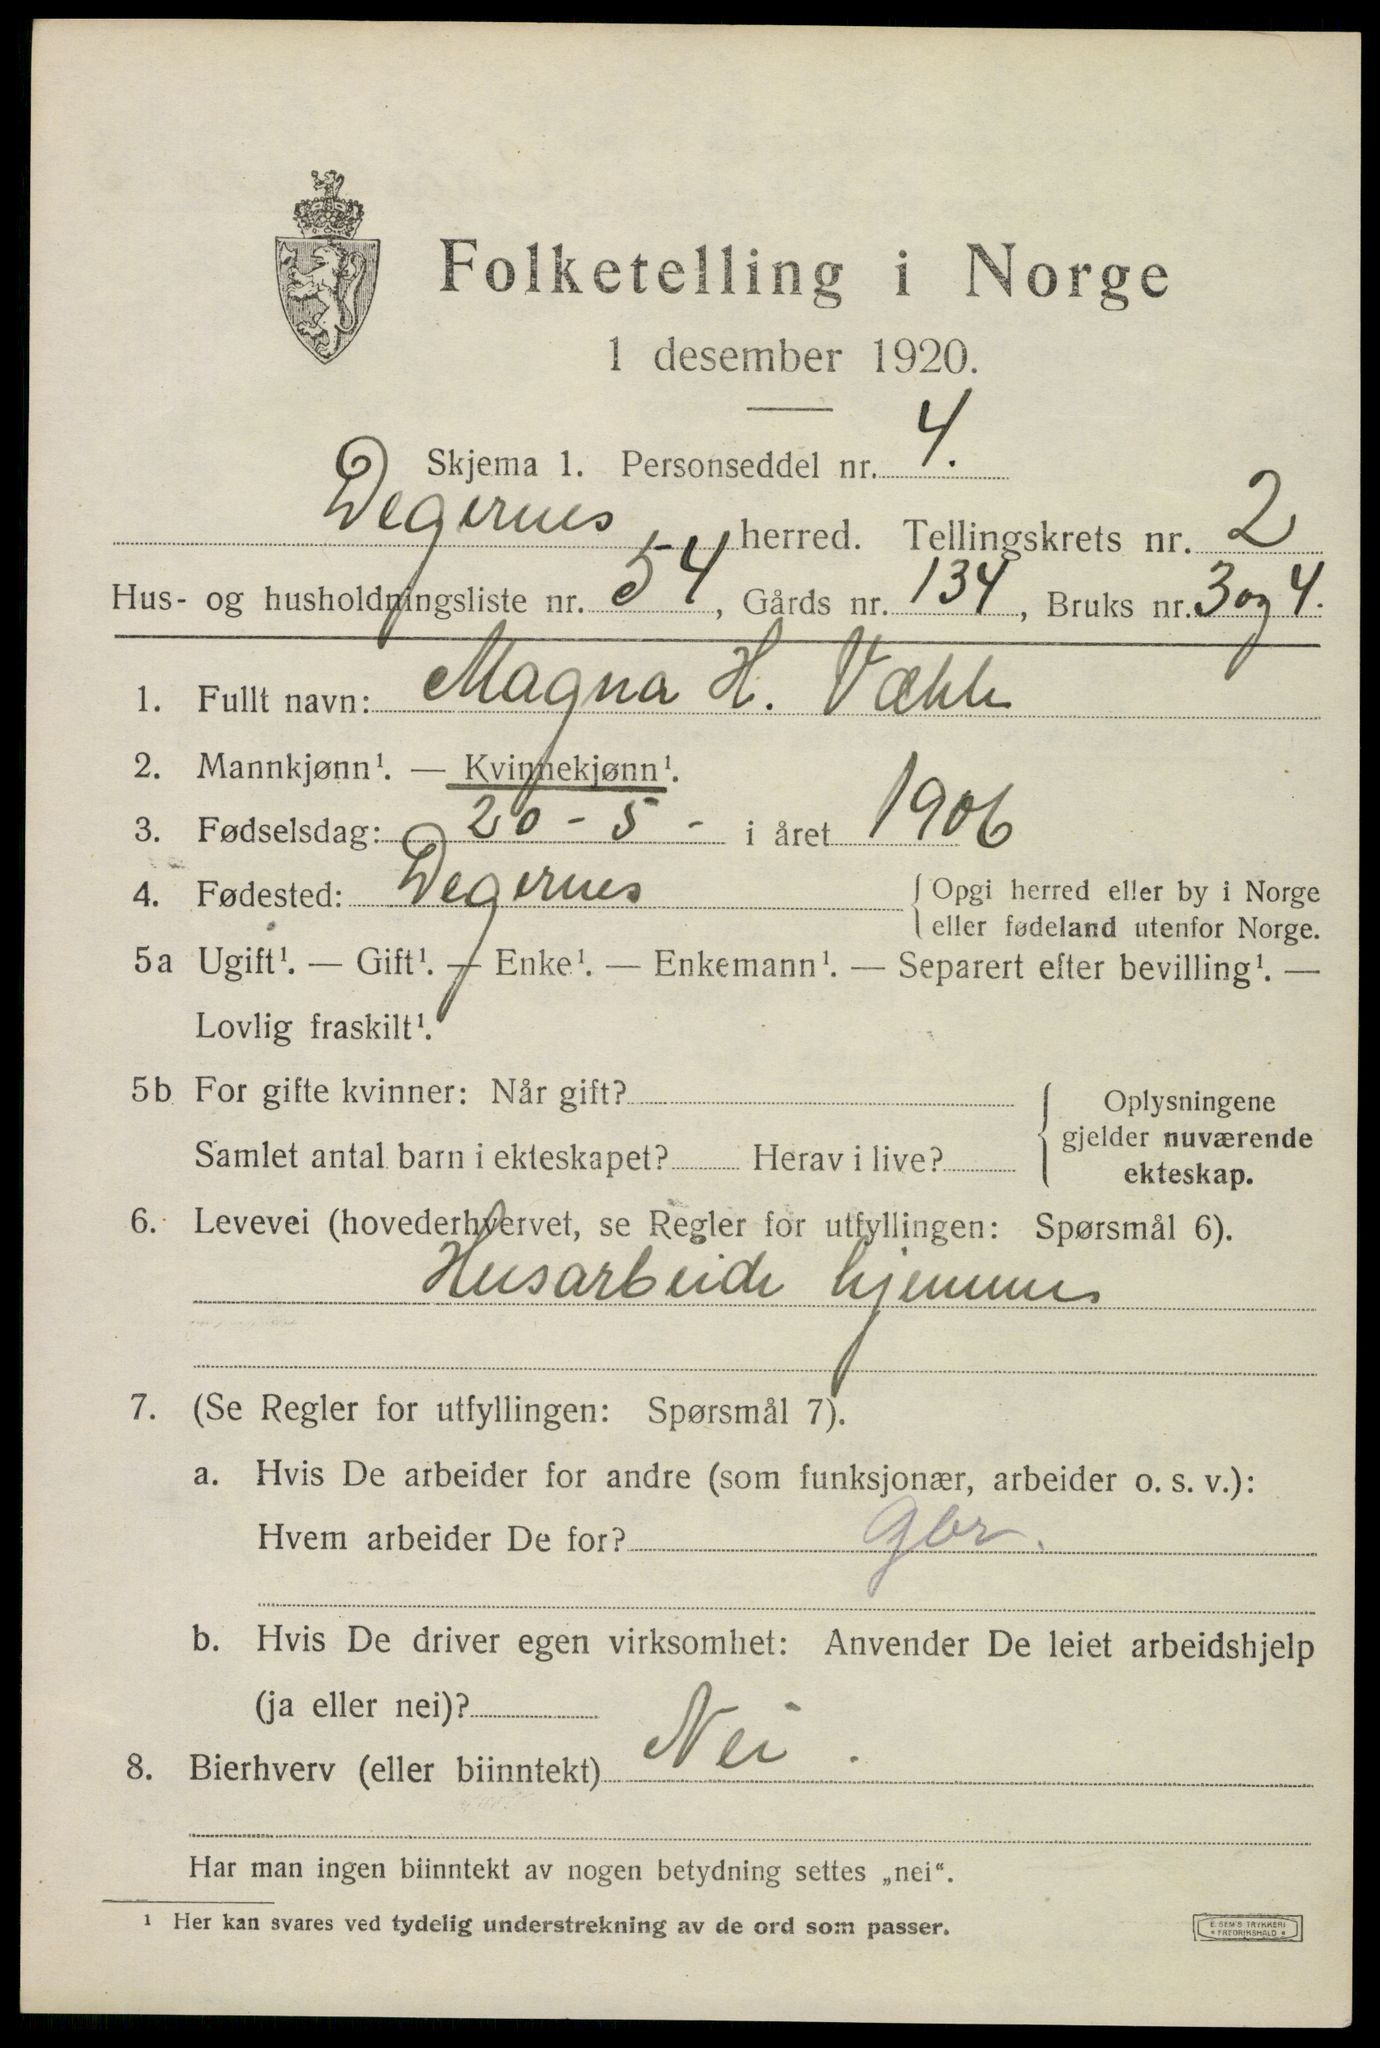 Folketelling i Norge
1 desember 1920.
Skjema 1. Personseddel nr. 4.
Degernes herred. Tellingskrets nr. 2
Hus- og husholdningsliste nr. 54, Gårds nr. 134, Bruks nr. 3 og 4.
1. Fullt navn: Magna H. Væhle
2. Mannkjønn¹. — Kvinnekjønn¹.
3. Fødselsdag: 20 - 5 - i året 1906
4. Fødested: Degernes { Opgi herred eller by i Norge
eller fødeland utenfor Norge.
5a Ugift¹. — Gift¹. — Enke¹. — Enkemann¹. — Separert efter bevilling¹. —
Lovlig fraskilt¹.
5b For gifte kvinner: Når gift? { Oplysningene
gjelder nuværende
Samlet antal barn i ekteskapet? Herav i live?
ekteskap.
6. Levevei (hovederhvervet, se Regler for utfyllingen: Spørsmål 6).
Husarbeide hjemme
7. (Se Regler for utfyllingen: Spørsmål 7).
a. Hvis De arbeider for andre (som funksjonær, arbeider o. s. v.):
Hvem arbeider De for? Gbr.
b. Hvis De driver egen virksomhet: Anvender De leiet arbeidshjelp
(ja eller nei)?
8. Bierhverv (eller biinntekt) Nei.
Har man ingen biinntekt av nogen betydning settes „nei“.
¹ Her kan svares ved tydelig understrekning av de ord som passer.
E. SEM'S TRYKKERI
* FREDRIKSHALD *